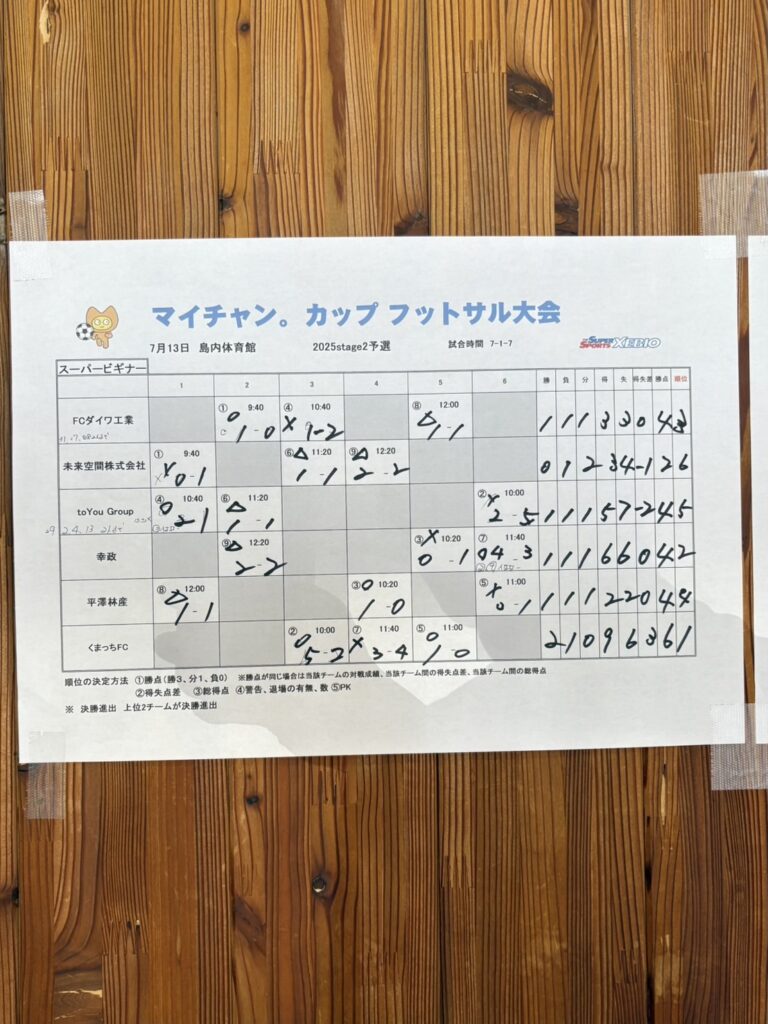 マイチャン。カップ フットサル大会
7月13日 島内体育館 2025stage2予選 試合時間 7-1-7 SUPER SPORTS XEBIO
スーパービギナー
1 2 3 4 5 6 勝 負 分 得 失 得失差 勝点 順位
FCダイワ工業 ① 9:40 ○ 1-0 ④ 10:40 × 1-2 ⑧ 12:00 △ 1-1 1 1 1 3 3 0 4 3
未来空間株式会社 ① 9:40 × 0-1 ⑥ 11:20 △ 1-1 ⑨ 12:20 △ 2-2 0 1 2 3 4 -1 2 6
toYou Group ④ 10:40 ○ 2-1 ⑥ 11:20 △ 1-1 ② 10:00 × 2-5 1 1 1 5 7 -2 4 5
幸政 ⑨ 12:20 △ 2-2 ③ 10:20 × 0-1 ⑦ 11:40 ○ 4-3 1 1 1 6 6 0 4 2
平澤林産 ⑧ 12:00 △ 1-1 ③ 10:20 ○ 1-0 ⑤ 11:00 × 0-1 1 1 1 2 2 0 4 4
くまっちFC ② 10:00 ○ 5-2 ⑦ 11:40 × 3-4 ⑤ 11:00 ○ 1-0 2 1 0 9 6 3 6 1
順位の決定方法 ①勝点(勝3、分1、負0) ※勝点が同じ場合は当該チームの対戦成績、当該チーム間の得失点差、当該チーム間の総得点
②得失点差 ③総得点 ④警告、退場の有無、数 ⑤PK
※ 決勝進出 上位2チームが決勝進出